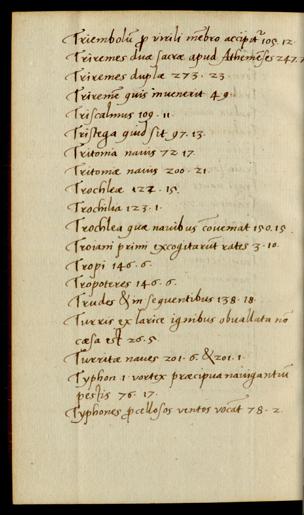 Triembolũ ꝓ virili mẽbro accipit̃ 105. 12.
Triremes duæ sacræ apud Athenẽses 247.
Triremes duplæ 273. 23.
Triremẽ quis invenerit 49.
Triscalmus 109. 11.
Tristega quid sit 97. 13.
Tritonia navis 72. 17.
Tritoniæ navis 200. 21.
Trochleæ 122. 15.
Trochilia 123. 1.
Trochlea quæ navibus cõveniat 150. 15.
Troiani primi excogitarũt rates 3. 10.
Tropi 146. 6.
Tropoteres 146. 6.
Trudes & in sequentibus 138. 18.
Turris ex larice ignibus obvallata nõ
cæsa est 26. 5.
Turritæ naves 201. 6. & 201. 1.
Typhon .i. vortex præcipua navigantiũ
pestis 76. 17.
Typhones ꝓcellosos ventos vocãt 78. 2.